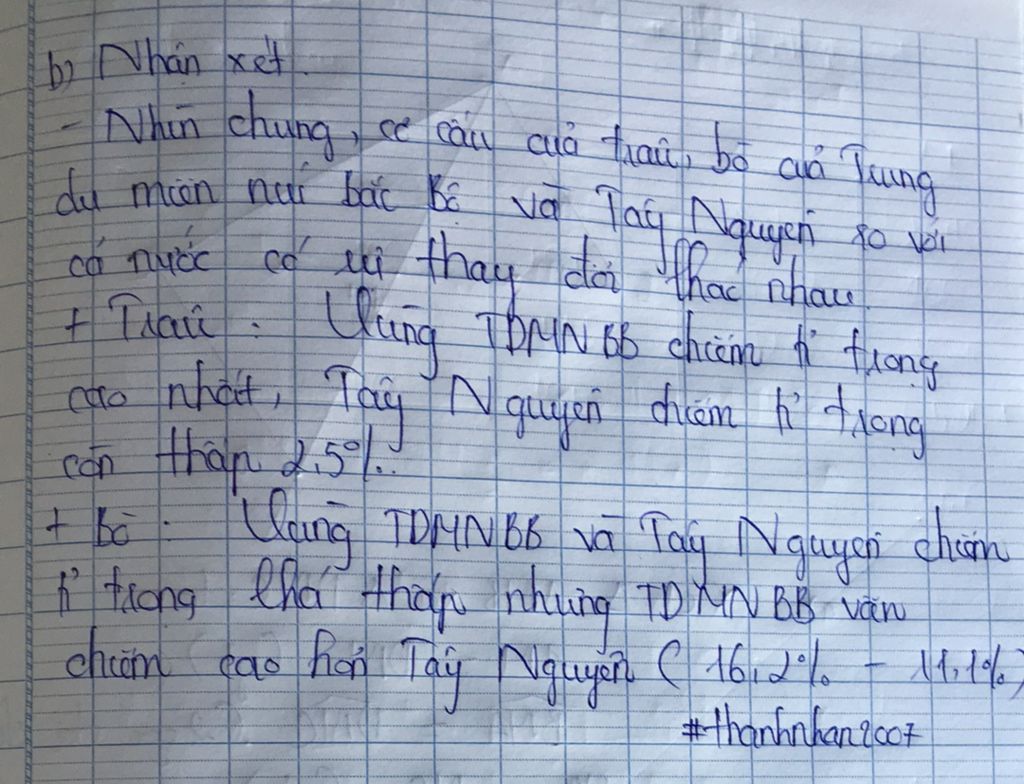 b) Nhận xét.
- Nhìn chung, cơ cấu của trâu, bò của Trung
du miền núi bắc Bộ và Tây Nguyên so với
cả nước có sự thay đổi khác nhau.
+ Trâu : Vùng TDMNBB chiếm tỉ trọng
cao nhất, Tây Nguyên chiếm tỉ trọng
còn thấp 2,5%.
+ Bò : Vùng TDMNBB và Tây Nguyên chiếm
tỉ trọng khá thấp nhưng TDMNBB vẫn
chiếm cao hơn Tây Nguyên (16,2% - 11,1%)
#thanhnhan2007